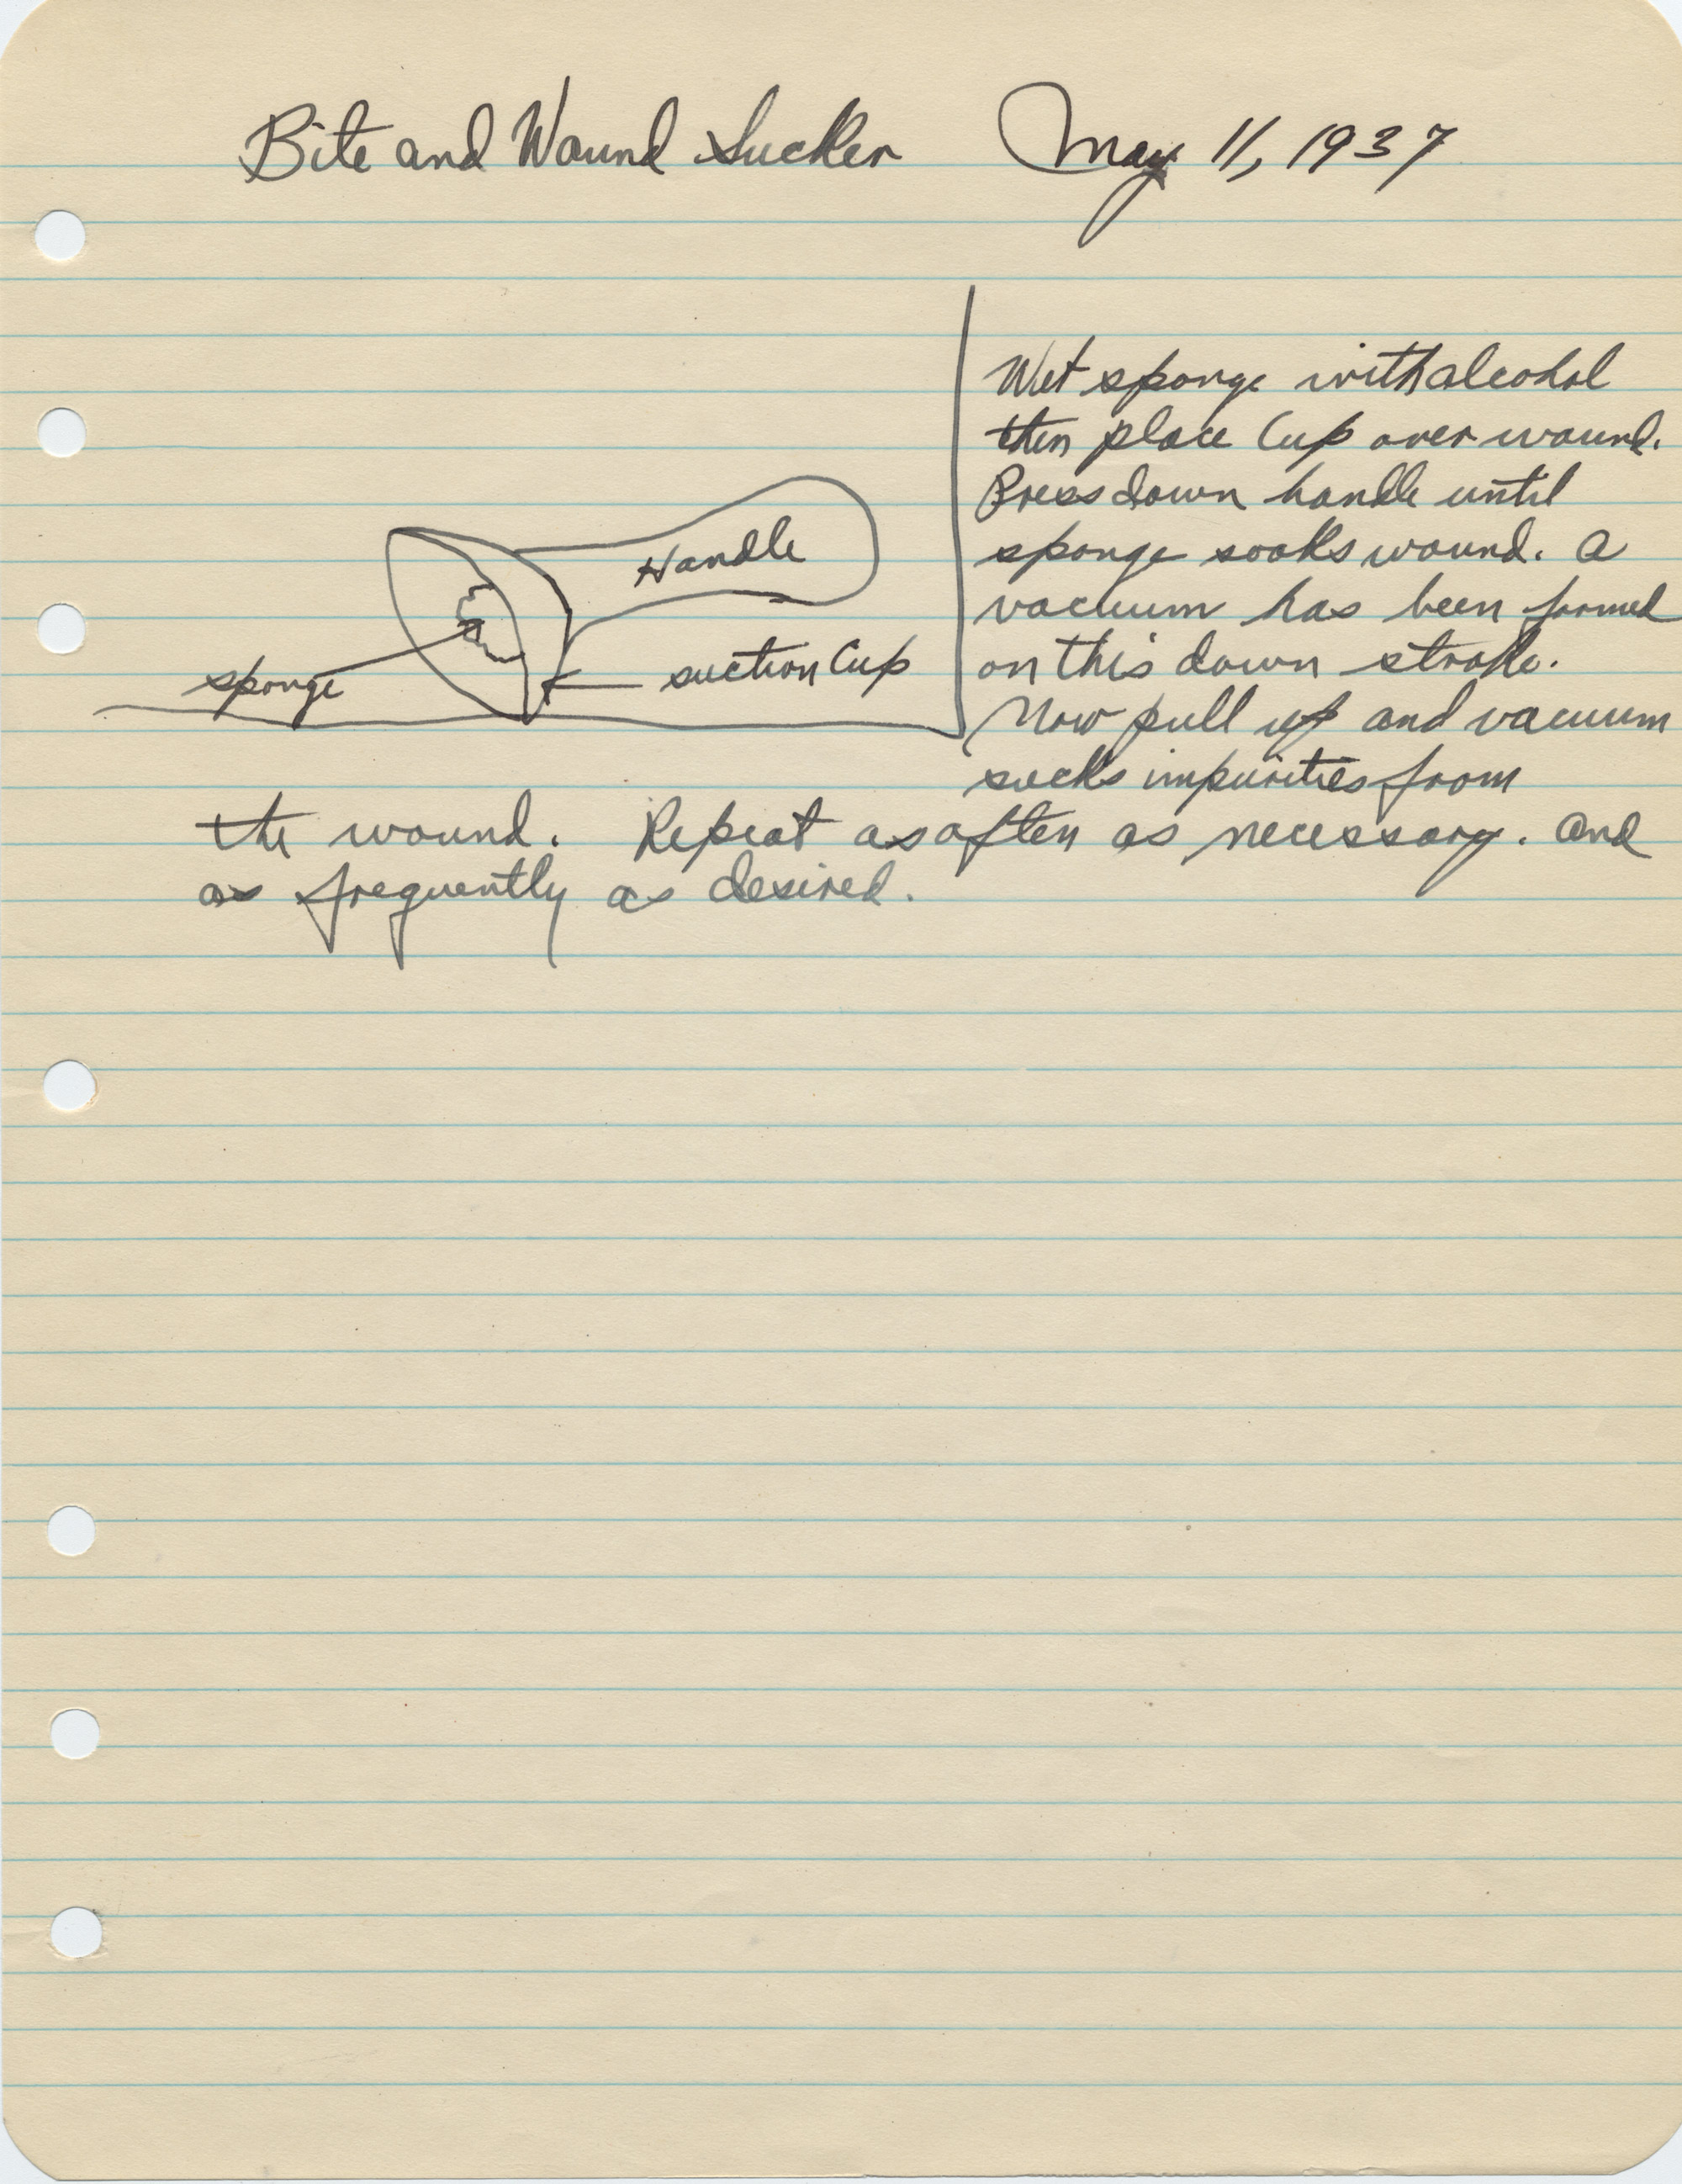 Bite and Wound Sucker May 11, 1937
Handle
sponge
suction Cup
Wet sponge with alcohol
then place Cup over wound.
Press down handle until
sponge soaks wound. A
vacuum has been formed
on this down stroke.
Now pull up and vacuum
sucks impurities from
the wound. Repeat as often as necessary. and
as frequently as desired.